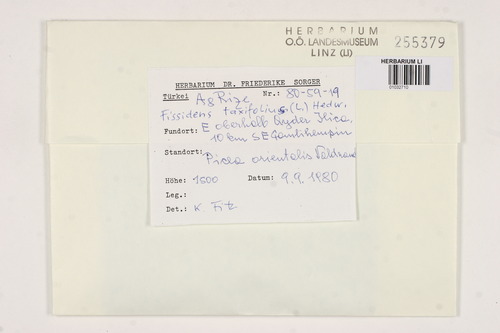 HERBARIUM
O.Ö. LANDESMUSEUM
LINZ (LI)
255379
HERBARIUM LI
HERBARIUM DR. FRIEDERIKE SORGER
Türkei A8 Rize Nr.: 80-59-19
Fissidens taxifolius (L.) Hedw.
Fundort: E oberhalb Ayder Ilica,
10 km SE
Standort: Picea orientalis
Höhe: 1500 Datum: 9.9.1980
Leg.:
Det.: K. Fitz